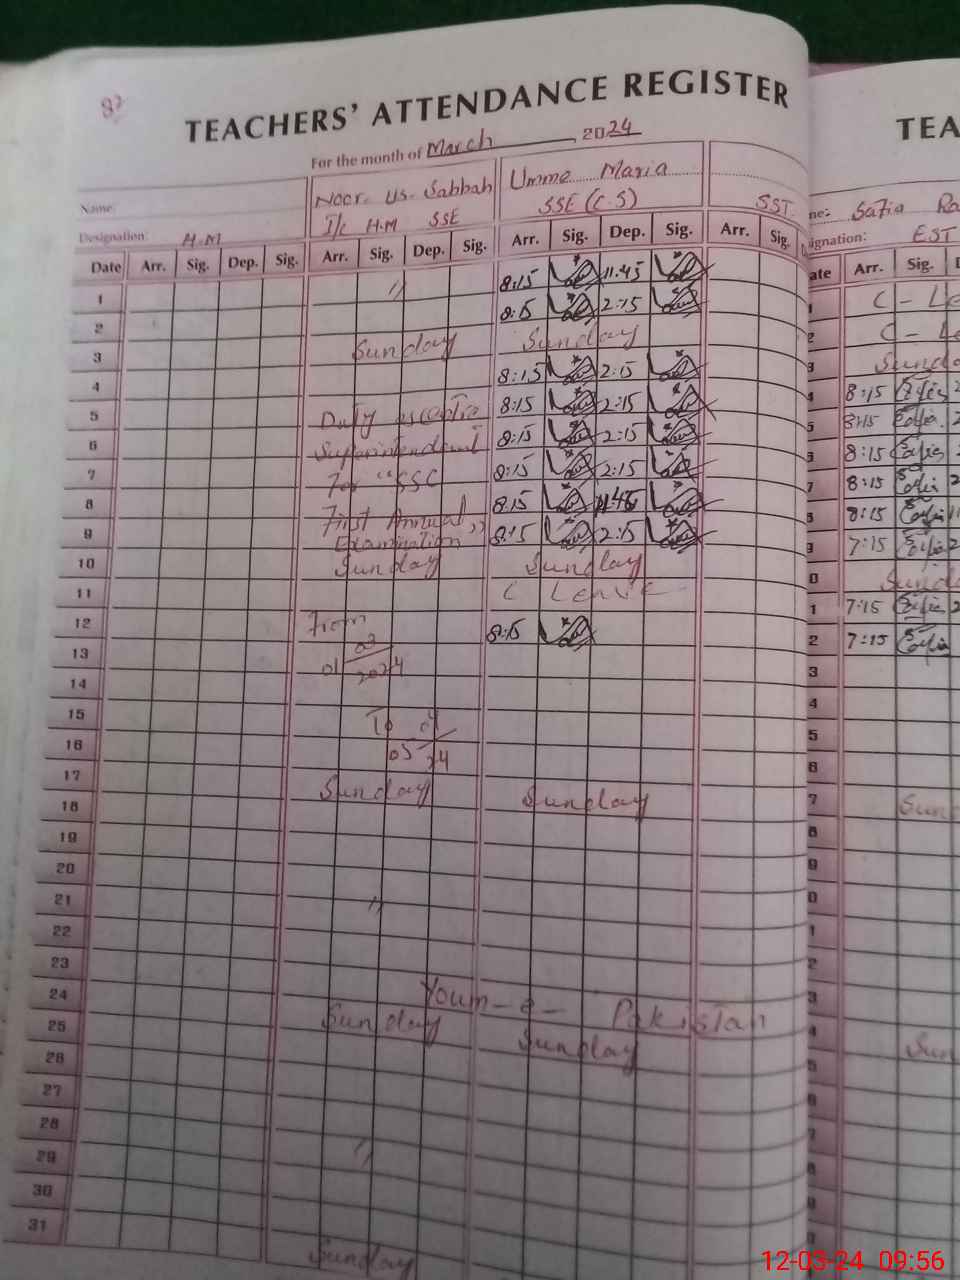 82
TEACHERS' ATTENDANCE REGISTER
For the month of March 2024
Name:
Noor. us. Sabbah
Umme Maria
Designation: H.M
I/c H.M SSE
SSE (C.S)
SST.
Date Arr. Sig. Dep. Sig. Arr. Sig. Dep. Sig. Arr. Sig. Dep. Sig. Arr. Sig.
1 " 8:15 11.45
2 8:15 2:15
3 Sunday Sunday
4 8:15 2:15
5 8:15 2:15
6 Superintendent 8:15 2:15
7 For "SSC 8:15 2:15
8 First Annual 8:15 11.45
9 Examination" 8:15 2:15
10 Sunday Sunday
11 C Leave
12 From 8:15
13 01 03 2024
14
15 To
16 05 04 24
17 Sunday Sunday
18
19
20
21 "
22
23 Youm-e-Pakistan
24 Sunday Sunday
25
26
27
28
29 "
30
31 Sunday
TEA
me: Safia Ra
signation: EST
ate Arr. Sig. D
1 C - Le
2 C - Le
3 Sunda
4 8:15 2
5 8:15 2
6 8:15
7 8:15 2
8 8:15
9 7:15 2
0 Sunda
1 7:15 2
2 7:15
3
4
5
6
7 Sun
8
9
0
1
2
3
4 Sun
5
12-03-24 09:56